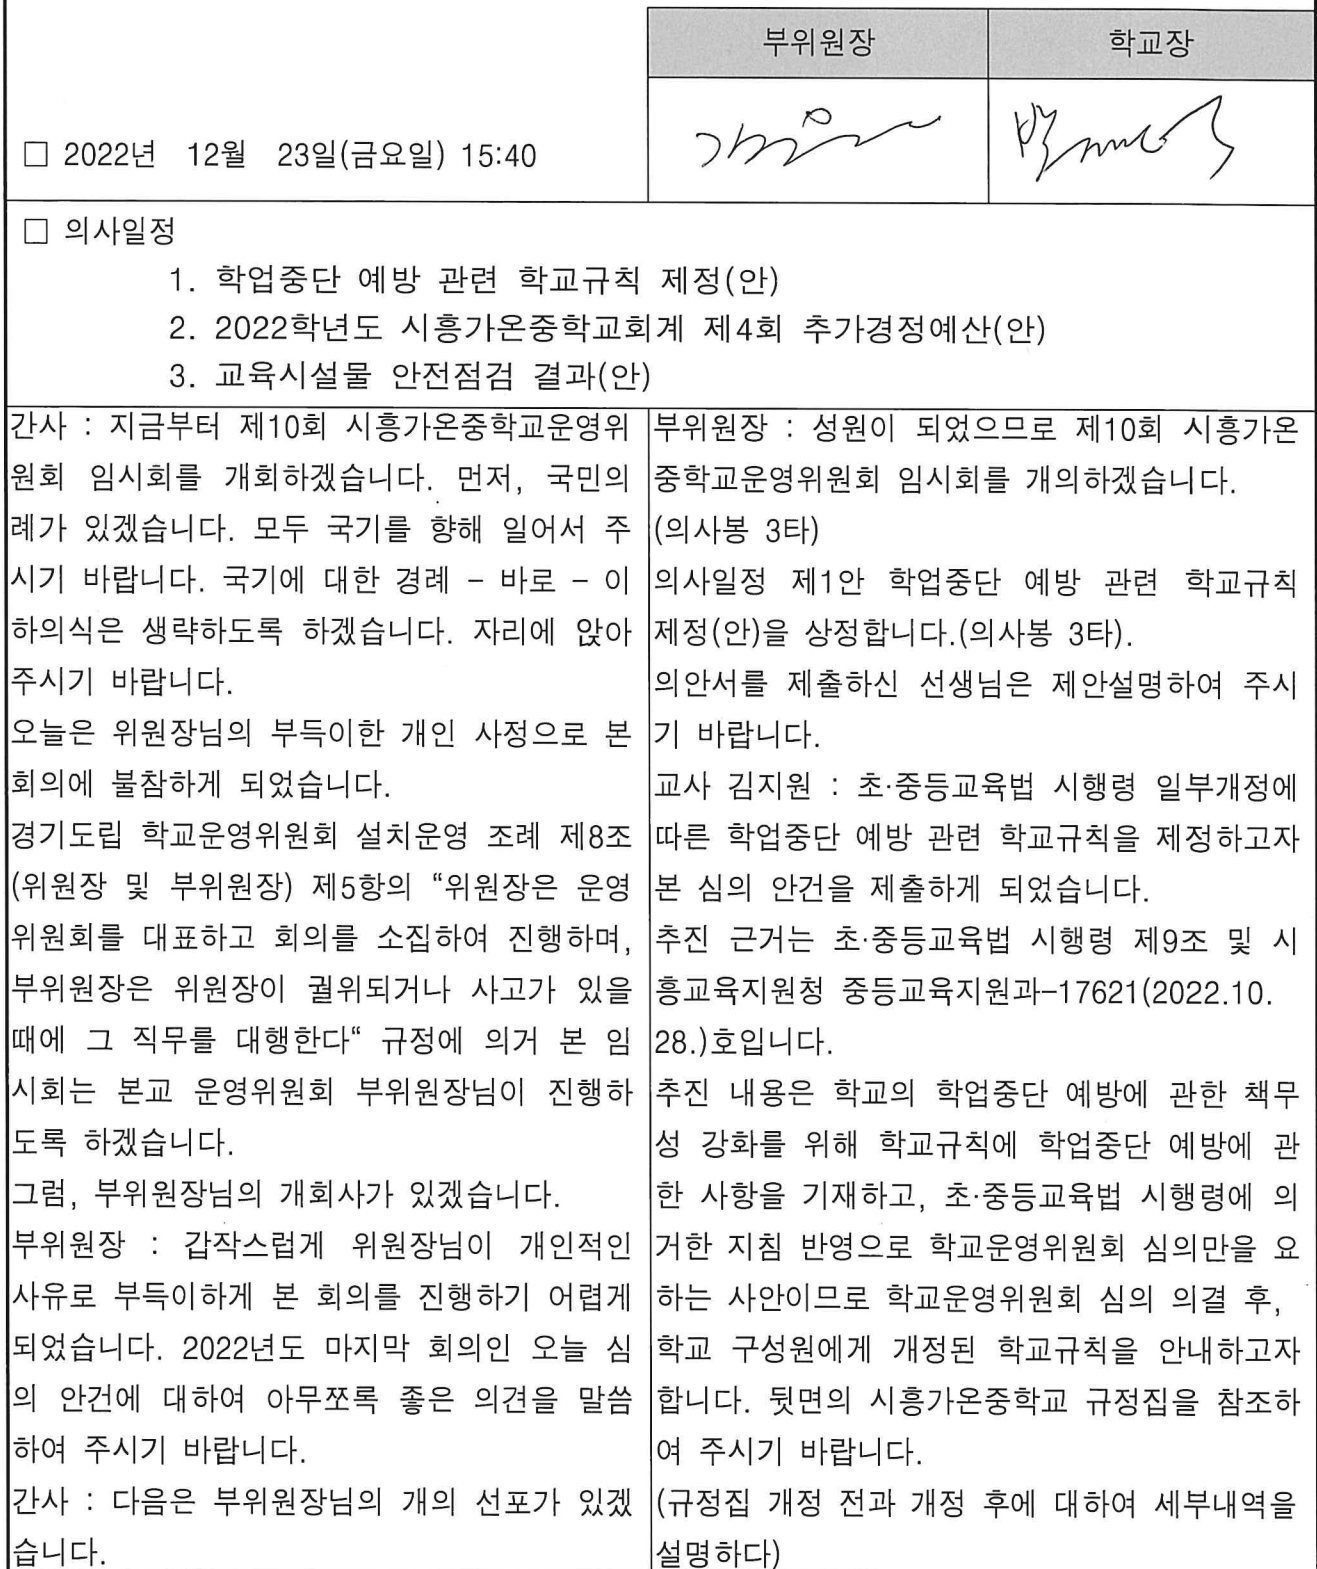 부위원장 학교장
□ 2022년 12월 23일(금요일) 15:40
□ 의사일정
1. 학업중단 예방 관련 학교규칙 제정(안)
2. 2022학년도 시흥가온중학교회계 제4회 추가경정예산(안)
3. 교육시설물 안전점검 결과(안)
간사 : 지금부터 제10회 시흥가온중학교운영위
원회 임시회를 개회하겠습니다. 먼저, 국민의
례가 있겠습니다. 모두 국기를 향해 일어서 주
시기 바랍니다. 국기에 대한 경례 – 바로 – 이
하의식은 생략하도록 하겠습니다. 자리에 앉아
주시기 바랍니다.
오늘은 위원장님의 부득이한 개인 사정으로 본
회의에 불참하게 되었습니다.
경기도립 학교운영위원회 설치운영 조례 제8조
(위원장 및 부위원장) 제5항의 “위원장은 운영
위원회를 대표하고 회의를 소집하여 진행하며,
부위원장은 위원장이 궐위되거나 사고가 있을
때에 그 직무를 대행한다“ 규정에 의거 본 임
시회는 본교 운영위원회 부위원장님이 진행하
도록 하겠습니다.
그럼, 부위원장님의 개회사가 있겠습니다.
부위원장 : 갑작스럽게 위원장님이 개인적인
사유로 부득이하게 본 회의를 진행하기 어렵게
되었습니다. 2022년도 마지막 회의인 오늘 심
의 안건에 대하여 아무쪼록 좋은 의견을 말씀
하여 주시기 바랍니다.
간사 : 다음은 부위원장님의 개의 선포가 있겠
습니다.
부위원장 : 성원이 되었으므로 제10회 시흥가온
중학교운영위원회 임시회를 개의하겠습니다.
(의사봉 3타)
의사일정 제1안 학업중단 예방 관련 학교규칙
제정(안)을 상정합니다.(의사봉 3타).
의안서를 제출하신 선생님은 제안설명하여 주시
기 바랍니다.
교사 김지원 : 초·중등교육법 시행령 일부개정에
따른 학업중단 예방 관련 학교규칙을 제정하고자
본 심의 안건을 제출하게 되었습니다.
추진 근거는 초·중등교육법 시행령 제9조 및 시
흥교육지원청 중등교육지원과–17621(2022.10.
28.)호입니다.
추진 내용은 학교의 학업중단 예방에 관한 책무
성 강화를 위해 학교규칙에 학업중단 예방에 관
한 사항을 기재하고, 초·중등교육법 시행령에 의
거한 지침 반영으로 학교운영위원회 심의만을 요
하는 사안이므로 학교운영위원회 심의 의결 후,
학교 구성원에게 개정된 학교규칙을 안내하고자
합니다. 뒷면의 시흥가온중학교 규정집을 참조하
여 주시기 바랍니다.
(규정집 개정 전과 개정 후에 대하여 세부내역을
설명하다)